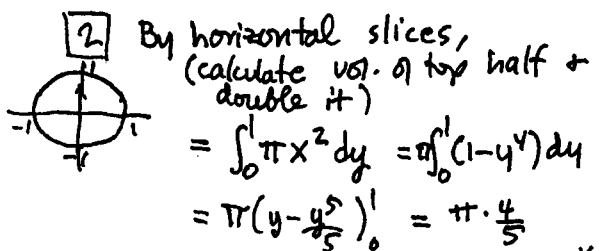 2 By horizontal slices,
(calculate vol. of top half &
double it)
1
-1 1
-1
= ∫₀¹ πx² dy = π∫₀¹ (1-y⁴) dy
= π(y - y⁵/5)₀¹ = π · 4/5